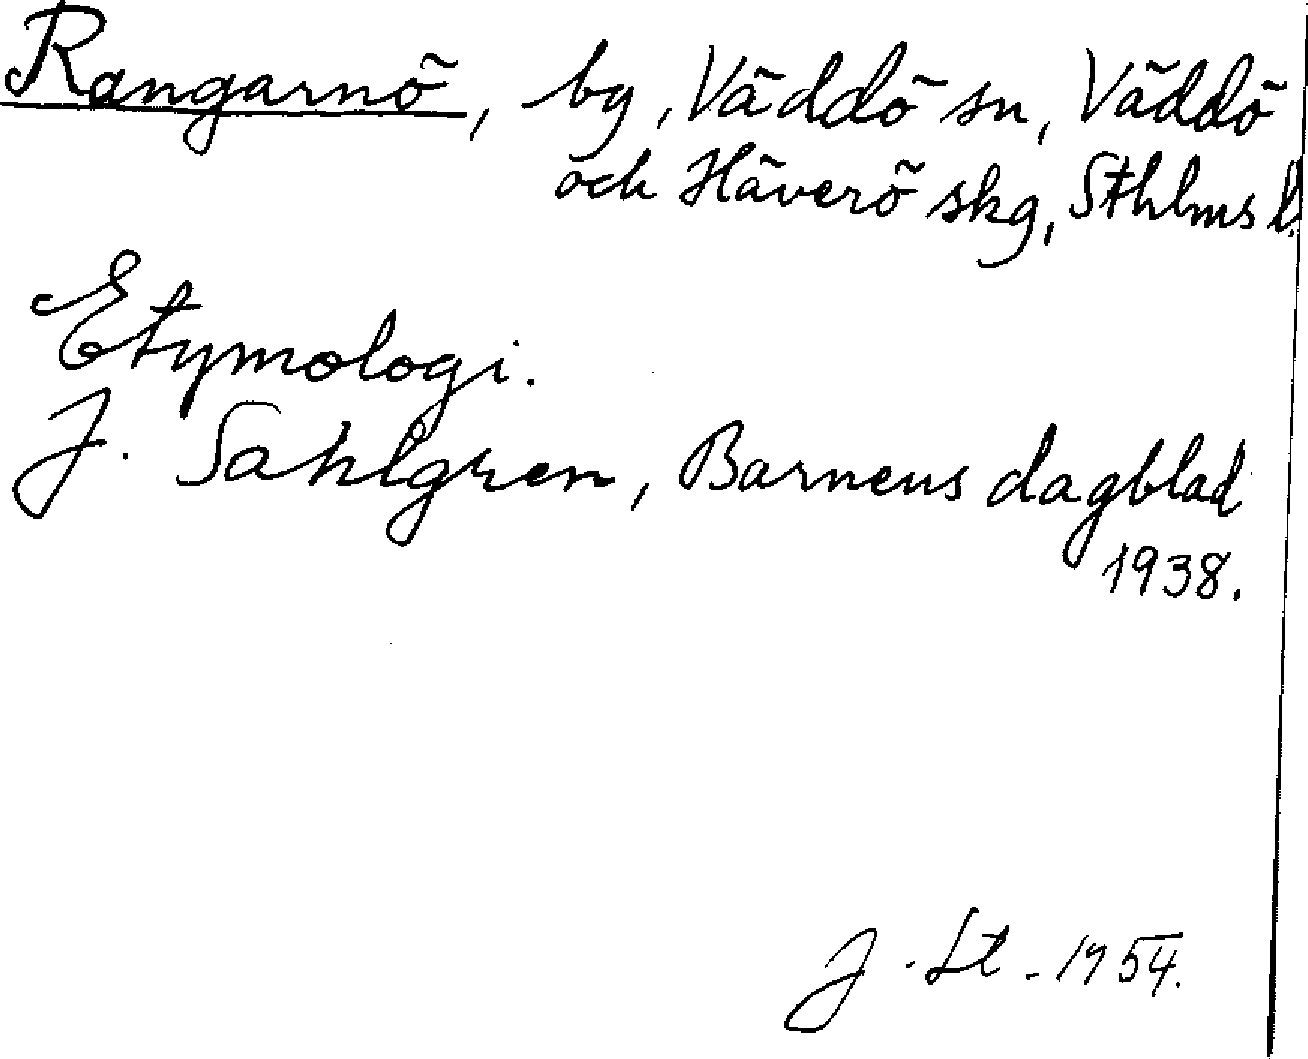 Rangarnö, by, Väddö sn, Väddö
och Häverö skg, Sthlms l.
Etymologi.
J. Sahlgren, Barnens dagblad
1938.
J. St. 1954.